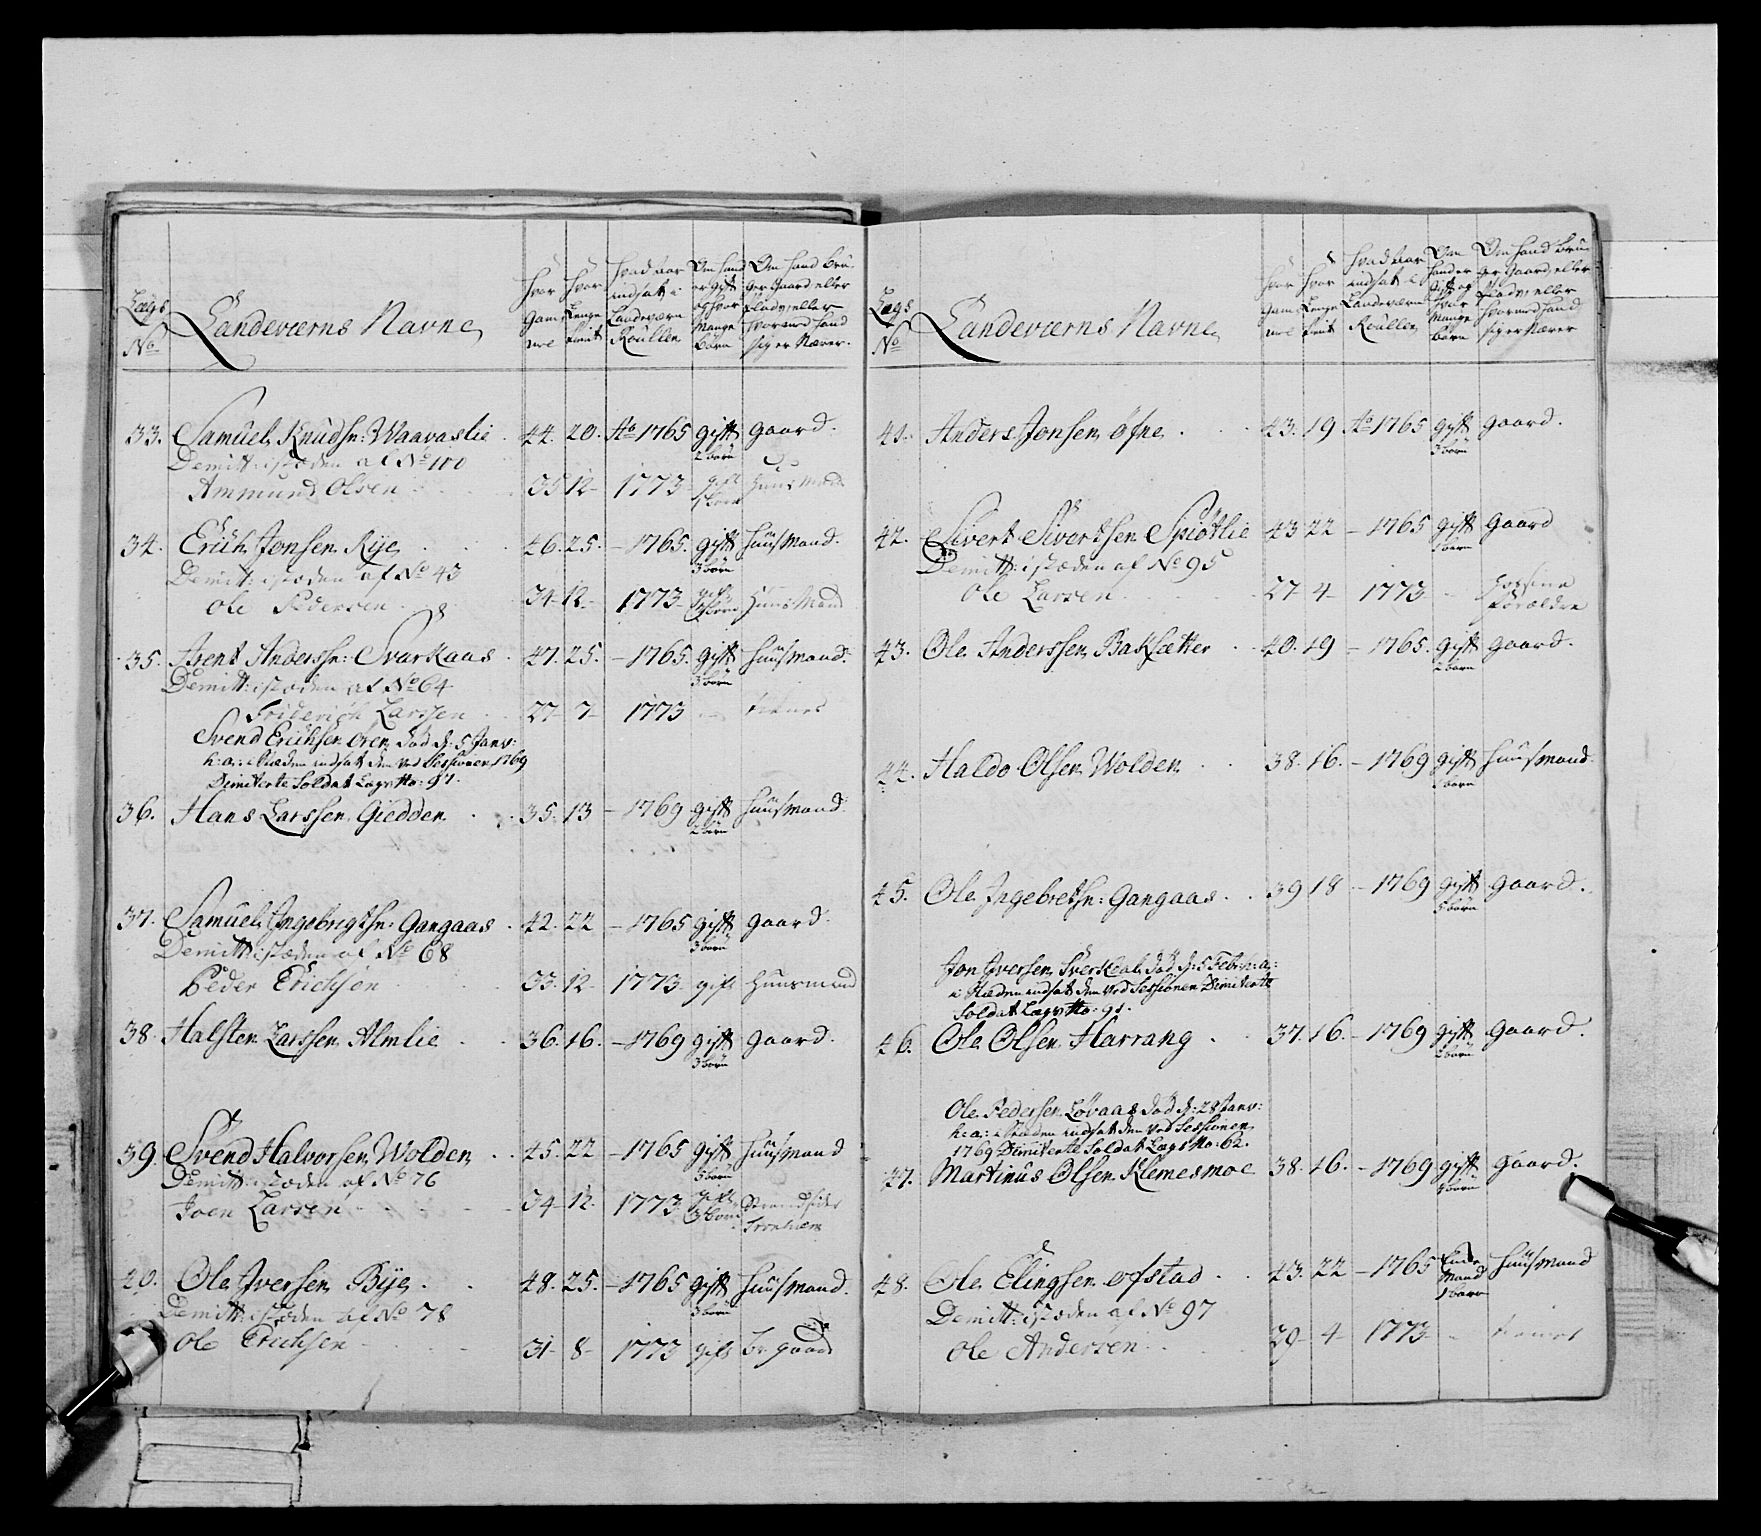 Lægs No
Landeværns Navne
Hvor Gam̄el
Hvor Lenge tient
Hvad Aar indsat i Landeværn Roullen
Om hand er gift og hvor mange børn
Om hand bruger Gaard eller Plads, eller hvormed hand sig er Nærer.
33. Samuel Knudsn: Waavaslie 44. 20. Ao 1765 gift 2 børn gaard.
Demitt: i stæden af No 100
Ammund Olsen 35 12 - 1773 - gift 1 barn Huusmand
34. Erich Jonsen Rye 46. 25. - 1765. gift 3 børn huusmand.
Demitt: i stæden af No 43
Ole Pedersen 34 - 12 - 1773 - gift Huusmand
35. Arent Anderssn: Svarkaas 47. 25. - 1765. gift 3 børn huusmand.
Demitt: i stæden af No 64
Friderich Larssen 27 - 7 - 1773 - tiener
Svend Erichsen Oren død d: 5 Janv:
h: a: i Stæden indsat den ved Sessionen 1769
Dimiterte Soldat Lægs No: 97.
36. Hans Larssen Giedden 35. 13 - 1769 gift 2 børn huusmand.
37. Samuel Ingebrigtsn: Gangaas 42. 22 - 1765 gift 3 børn gaard.
Demitt: i stæden af No 68
Peder Erichsen 33 - 12 - 1773 - gift huusmand
38. Halsten Larssen Almlie 36. 16. - 1769 gift 3 børn gaard.
39. Svend Halvorsen Wolden 45. 22 - 1765 gift 3 børn huusmand
Demitt: i stæden af No 76
Joen Larsen 34 - 12 - 1773 gift 3 børn Strandsider Tronhiem
40. Ole Iversen Bye 48. 25. - 1765 gift 3 børn huusmand.
Demitt: i stæden af No 78
Ole Erichsen 31 - 8 - 1773 gift br gaard
Lægs No
Landeværns Navne
Hvor Gam̄el
Hvor Lenge tient
Hvad Aar indsat i Landeværn Roullen
Om hand er gift og hvor mange børn
Om hand bruger Gaard, eller Plads, eller hvormed hand sig er Nærer
41. Anders Jonsen Øfne 43. 19 Ao 1765 gift 3 børn gaard.
42. Sivert Sivertsen Spiøtlie 43 22 - 1765 gift 1 barn gaard
Demitt: i stæden af No 95
Ole Larsen 27 - 4 - 1773 - forældre
43. Ole Anderssen Baksætter 40. 19 - 1765. gift 2 børn gaard.
44. Haldo Olsen Wolden 38. 16. - 1769 gift huusmand.
45. Ole Ingebretsn: Gangaas 39 18 - 1769 gift 5 børn gaard.
Jon Iversen død d: 5 Febr: h: a:
i Stæden indsat den ved Sessionen Dimiterte
Soldat Lægs No: 91.
46. Ole Olsen Harrang 37. 16. - 1769 gift 2 børn gaard.
Ole Pedersen Løvaas død d: 28 Janv:
h: a: i Stæden indsat den ved Sessionen
1769 Dimiterte Soldat Lægs No: 62.
47. Martinus Olsen Klemesmoe 38. 16. - 1769 gift gaard.
48. Ole Elingsen Ofstad 43. 22 - 1765 Enke Mand 1 barn huusmand
Demitt: i stæden af No 97
Ole Andersen 29 - 4 - 1773 - tiener